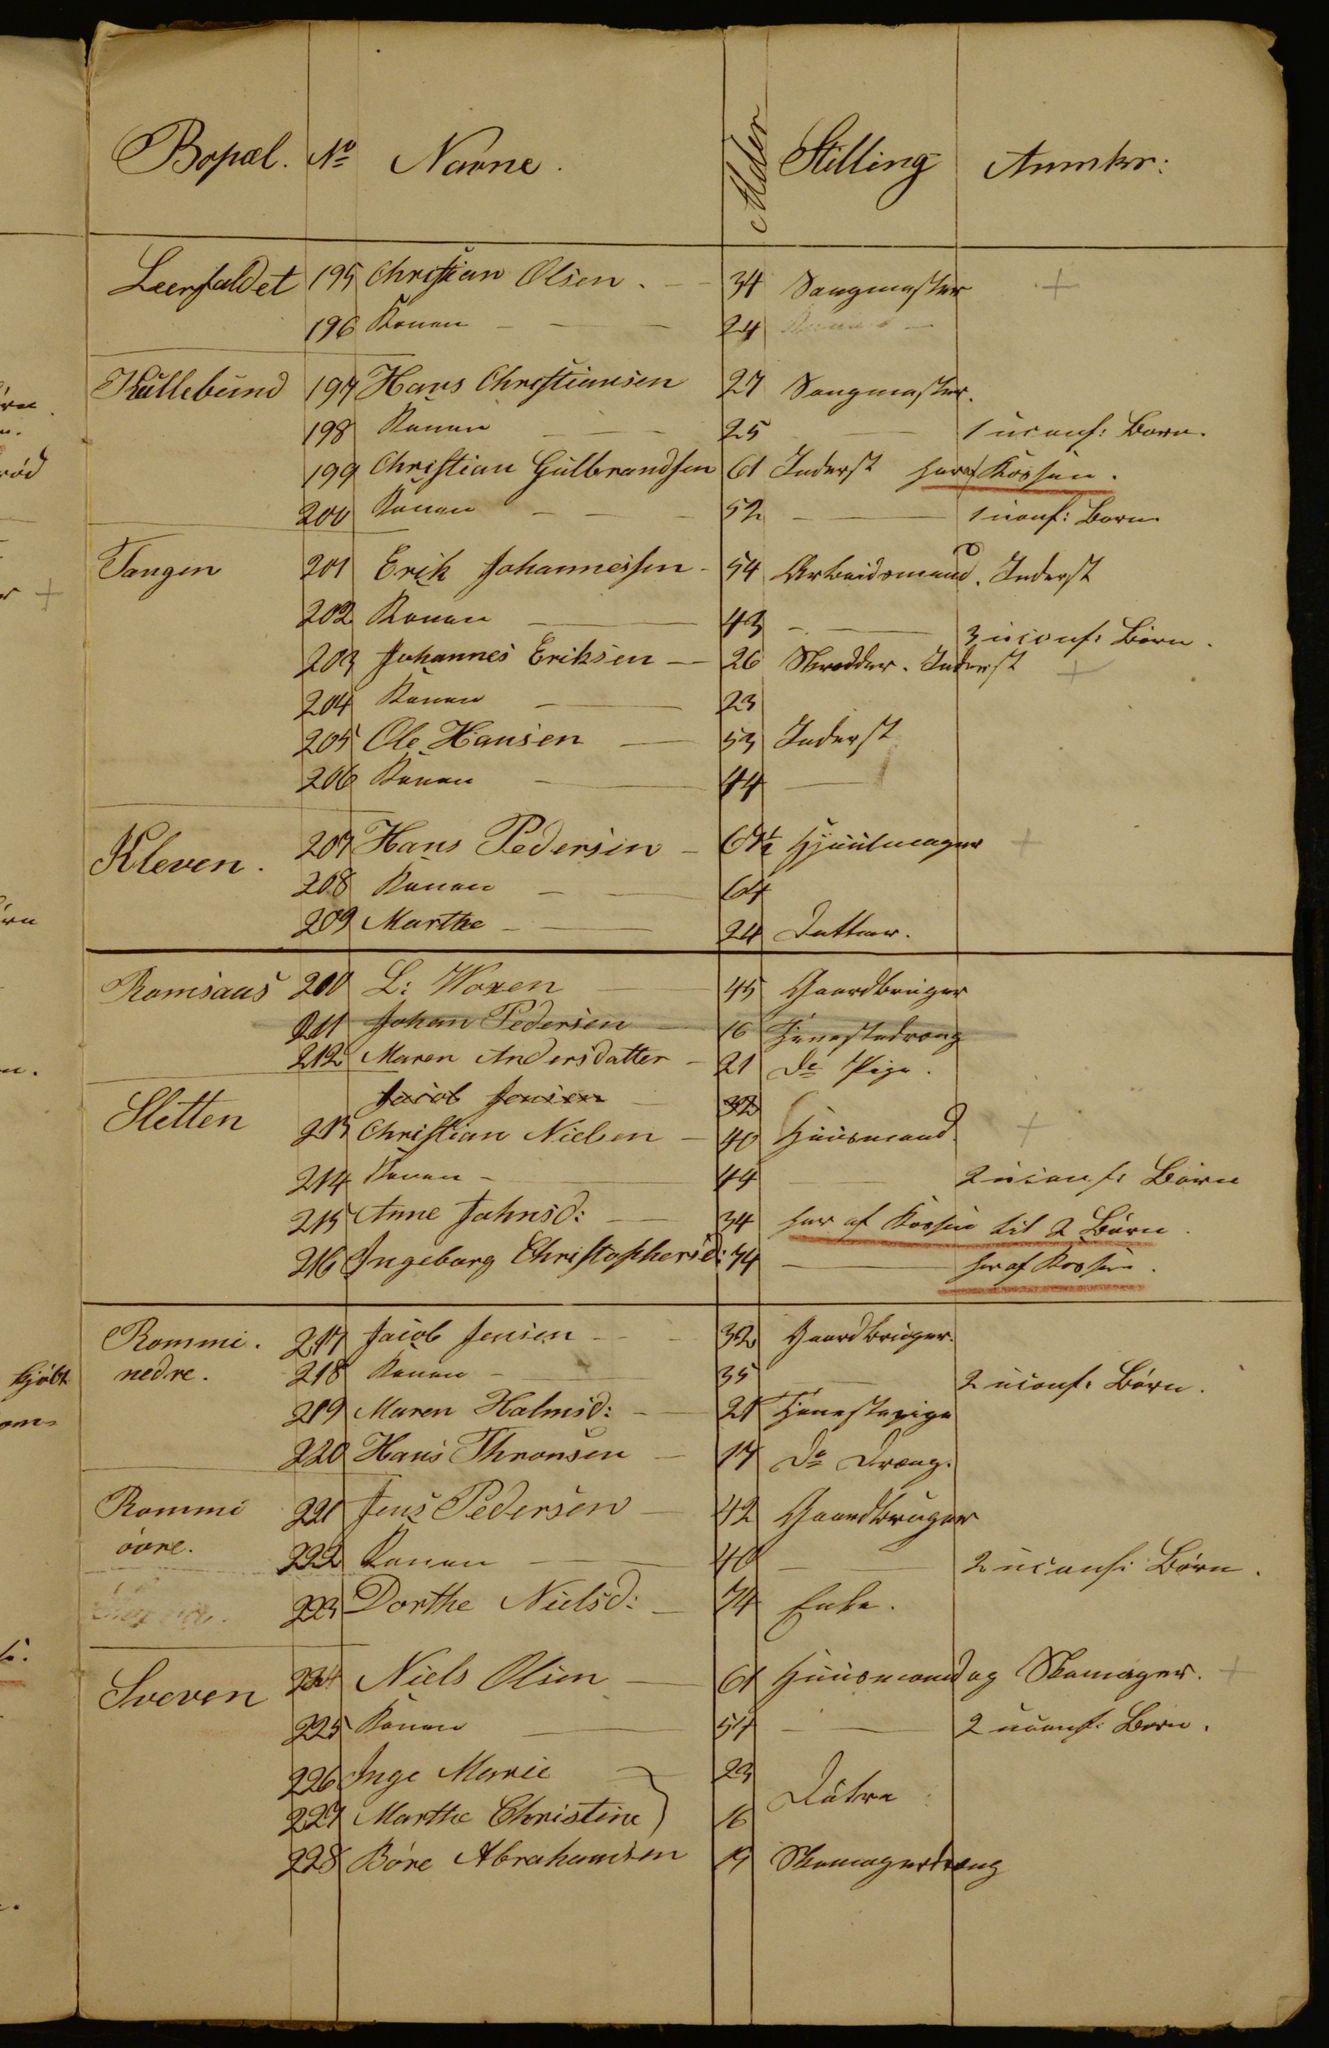 Bopæl. No Navne. Alder Stilling Anmkr:
Leerfaldet 195 Christian Olsen. - 34 Saugmester +
196 Konen - - - 24
Kullebund 197 Hans Christiansen 27 Saugmester.
198 Konen - - - 25 - 1 uconf: Barn.
199 Christian Gulbrandsen 61 Inderst har af Kassen.
200 Konen - - - 52 - 1 uconf: Barn
Tangen 201 Erik Johannessen - 54 Arbeidsmand. Inderst
202 Konen - 43 - 3 uconf: Børn.
203 Johannes Eriksen - 26 Skredder. Inderst +
204 Konen - 23
205 Ole Hansen - 53 Inderst
206 Konen - 44 -
Kleven. 207 Hans Pedersen - 67½ Hjuulmager +
208 Konen - - 64
209 Marthe - - 24 Datter.
Ramsaas 210 L: Woxen - 45 Gaardbruger
211 Johan Pedersen - 16 Tjenestedreng
212 Maren Andersdatter - 21 Do Pige.
Jacob Jensen - 32
Sletten 213 Christian Nielsen - 40 Huusmand. +
214 Konen - - 44 - 2 uconf: Børn
215 Anne Johnsd: - 34 har af Kassen til 2 Børn.
216 Ingeborg Christophersd: 74 - har af Kassen.
Rommi. 217 Jacob Jensen - - 32 Gaardbruger.
nedre. 218 Konen - - 35 - 2 uconf: Børn.
219 Maren Halmsd: - 21 Tjenestepige
220 Hans Thronsen - 17 Do Dreng.
Rommi 221 Jens Pedersen - 42 Gaardbruger
övre. 222 Konen - - 40 - 2 uconf: Børn.
223 Dorthe Nielsd: - 74 Enke.
Sveven 224 Niels Olsen - 61 Huusmand og Skomager. +
225 Konen - 54 - 2 uconf: Børn.
226 Inge Marie - 23
Døtre
227 Marthe Christine 16
228 Böre Abrahamsen 19 Skomagerdreng